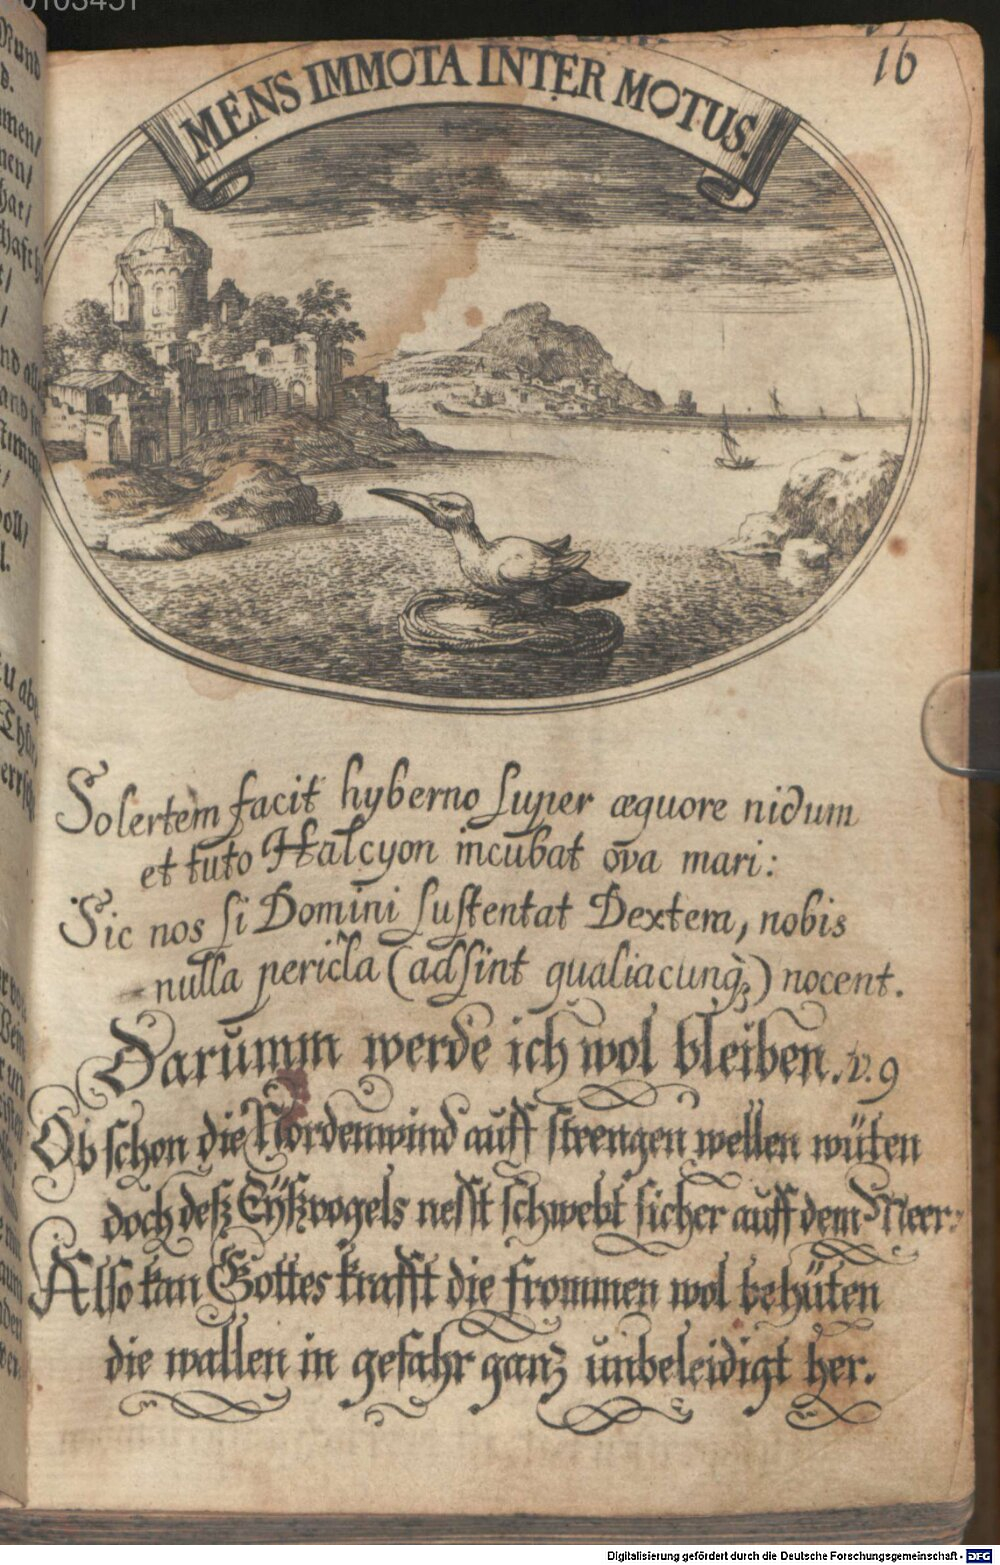 16
MENS IMMOTA INTER MOTUS.
Solertem facit hyberno super æquore nidum
et tuto Halcyon incubat ova mari:
Sic nos si Domini sustentat Dextera, nobis
nulla pericla (adsint qualiacunq;) nocent.
Darumm werde ich wol bleiben. v. 9
Ob schon die Nordenwind auff strengen wellen wüten
doch deß Eyßvogels nesst schwebt sicher auff dem Meer:
Also kan Gottes krafft die frommen wol behüten
die wallen in gefahr ganz unbeleidigt her.
Digitalisierung gefördert durch die Deutsche Forschungsgemeinschaft - DFG